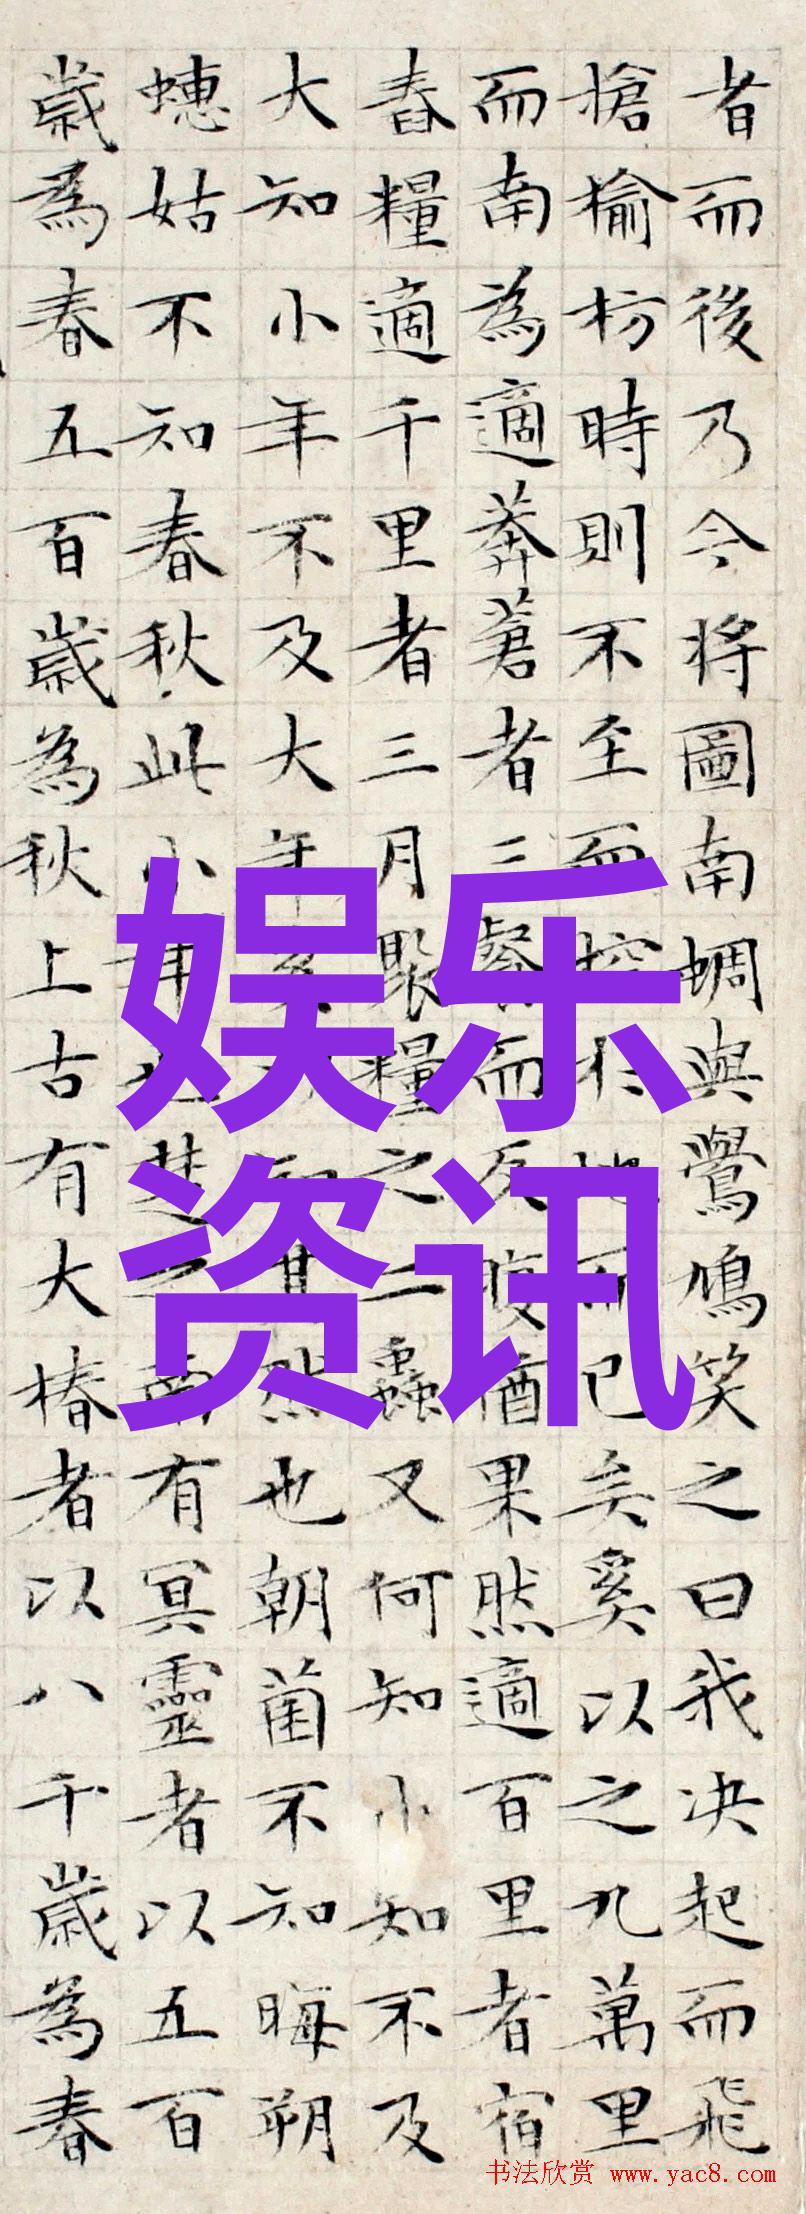 者而後乃今將圖南蜩與鷽鳩笑之曰我决起而飛
搶榆枋時則不至而控於地而已矣奚以之九萬里
而南為適莽蒼者三飡而反腹猶果然適百里者宿
舂糧適千里者三月聚糧之二蟲又何知小知不及
大知小年不及大年奚以知其然也朝菌不知晦朔
蟪姑不知春秋此小年也楚之南有冥靈者以五百
歲為春五百歲為秋上古有大椿者以八千歲為春
娱乐
资讯
书法欣赏 www.yac8.com